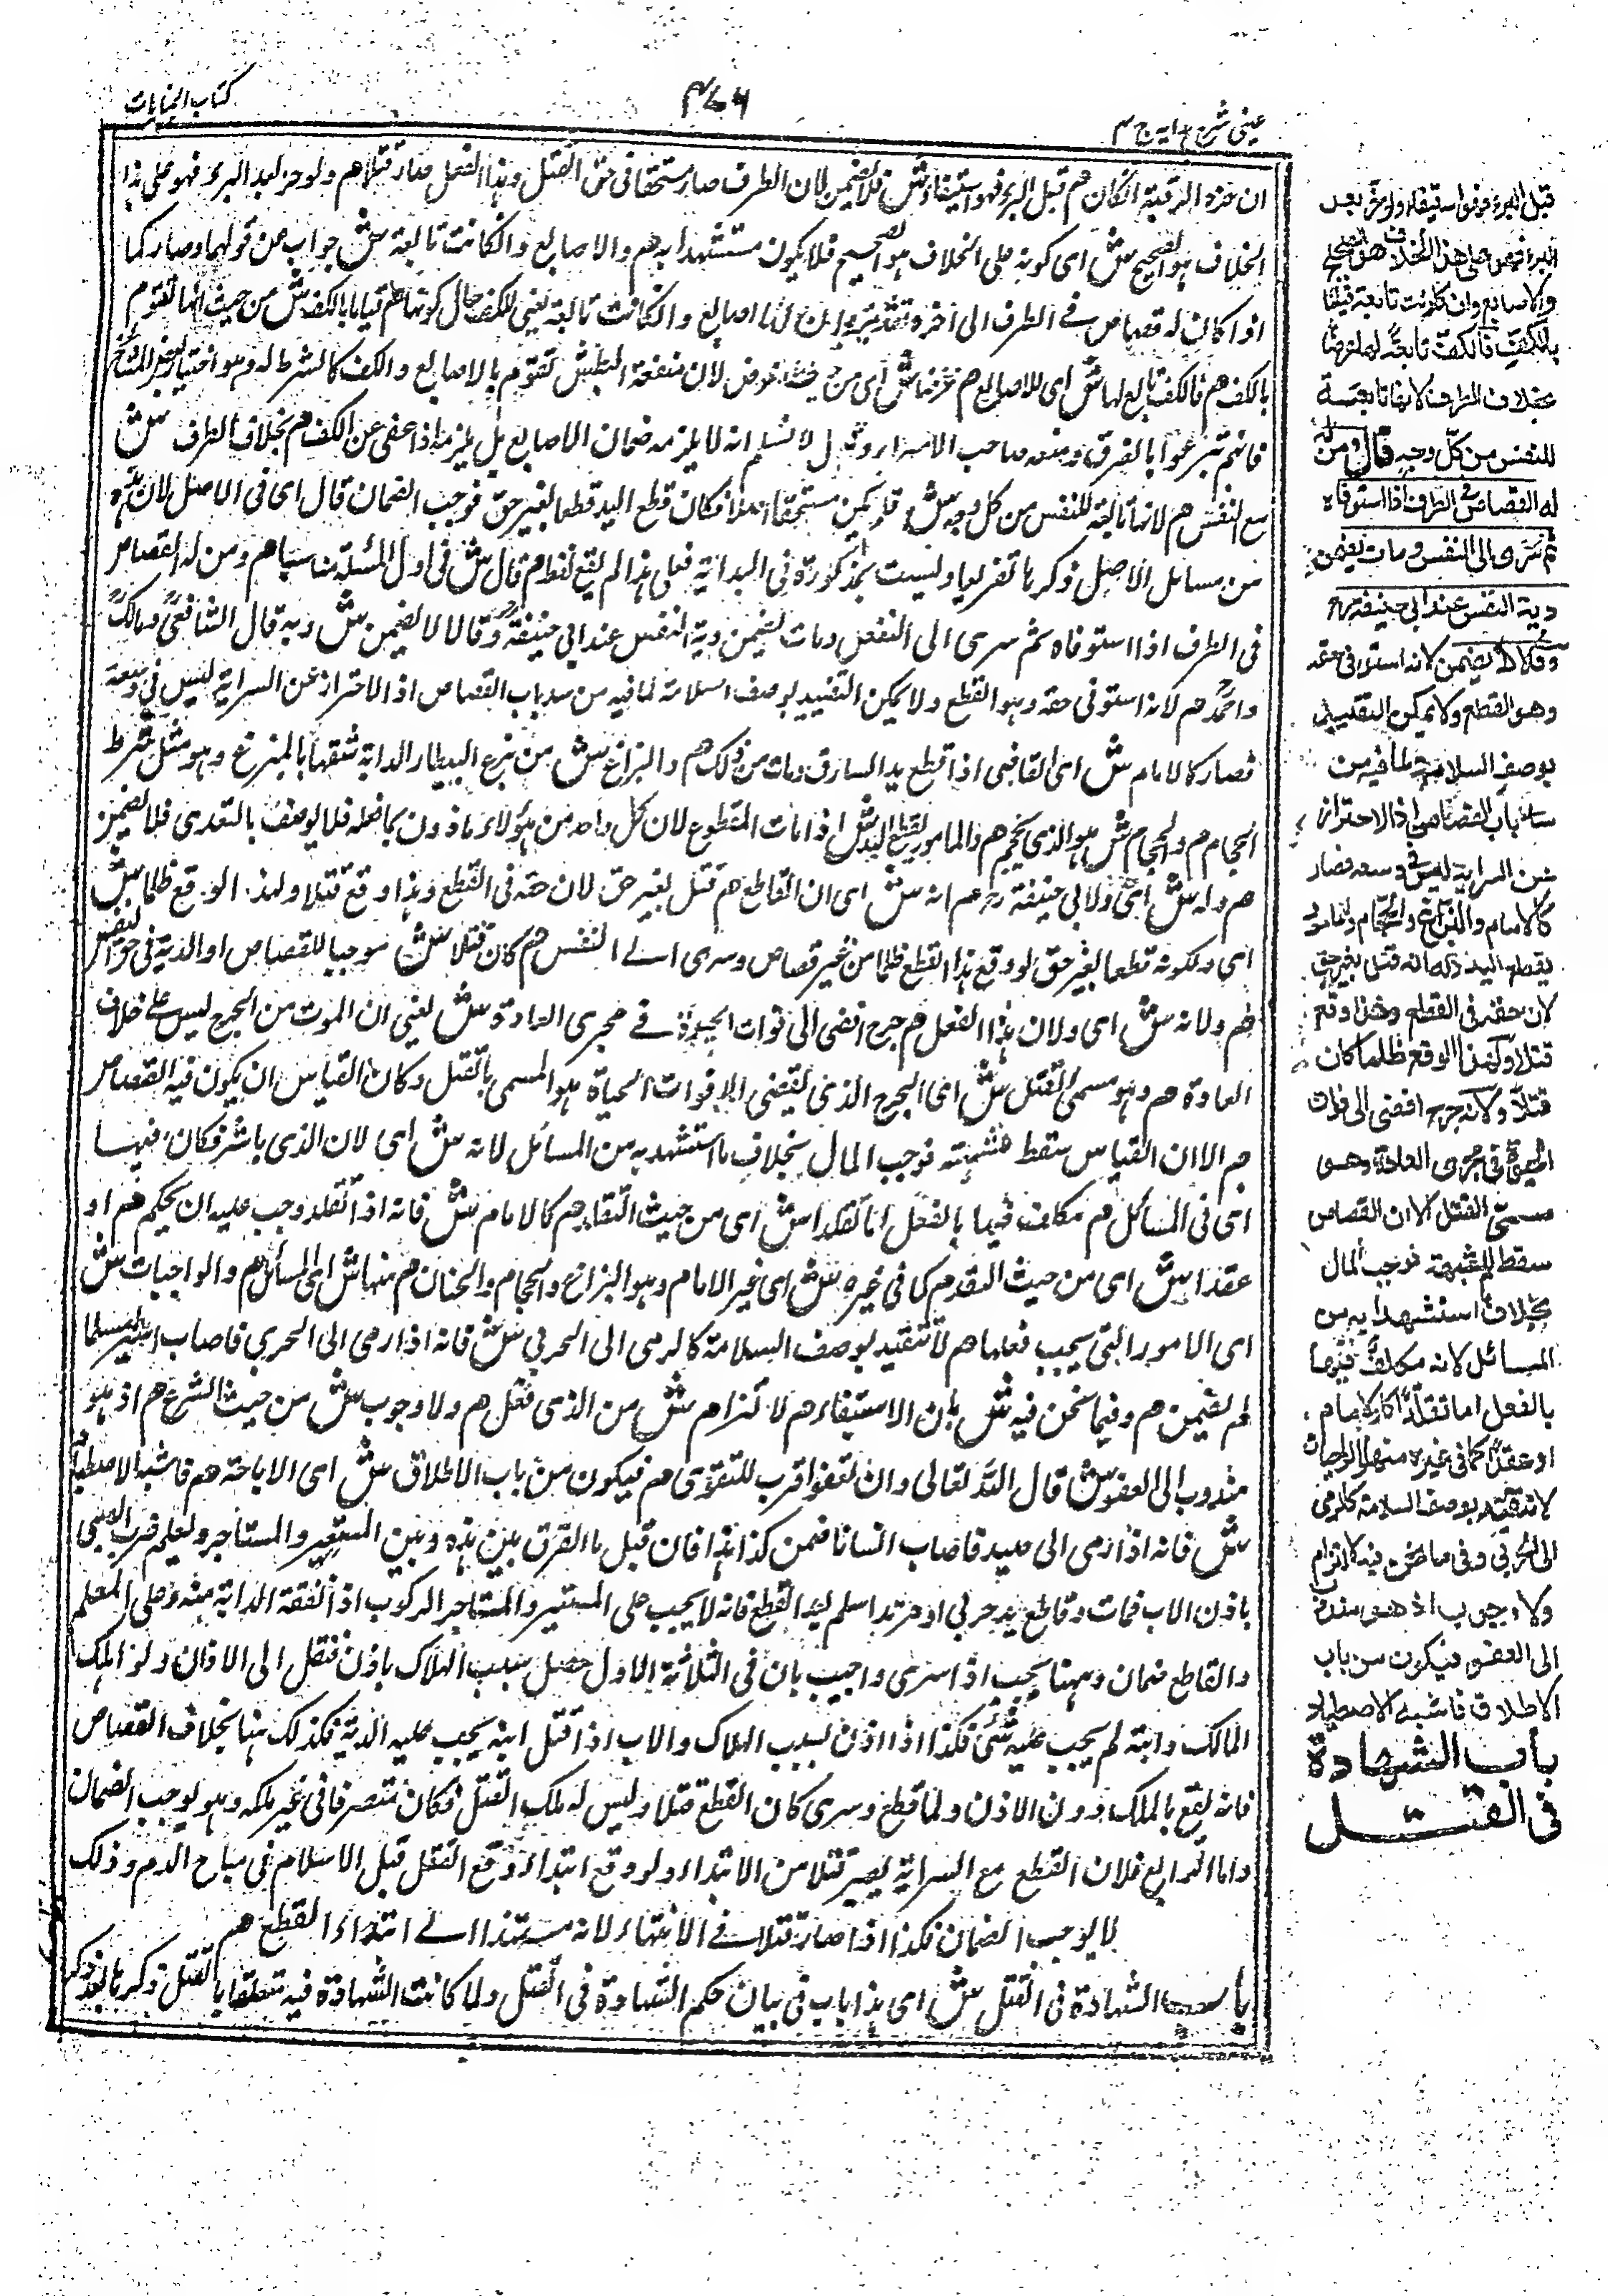 عینی شرح ہدایہ ج ۴
۴۷۶
کتاب الجنایات
ان حزہ الرقبۃ ان کان ھم قبل البرء فھو استیفاء ش فلا یضمن لان الطرف صار مستحقا فی حق القتل وہذا الفعل صار قتلا ھم ولو حز بعد البرء فھو علی ہذا
الخلاف ہو الصحیح ش ای کونہ علی الخلاف ہو الصحیح فلا یکون مستشہدا بہ ھم والاصابع وان کانت تابعۃ ش جواب عن قولہما وصار کما
اذا کان لہ قصاص فے الطرف الی آخرہ تقدیرہ ان الاصابع وان کانت تابعۃ یعنی للکف حال کونہا ھم قیاما بالکف ش من حیث انہا تقوم
بالکف ھم فالکف تابع لہا ش ای للاصابع ھم غرضا ش ای من حیث الغرض لان منفعۃ البطش تقوم بالاصابع والکف کالشرط لہ وہو اختیار بعض المشائخ
فانہم تبرعوا بالفرق ومنعہ صاحب الاسرار وقال لا نسلم انہ لا یلزمہ ضمان الاصابع بل یلزمہ اذا عفی عن الکف ھم بخلاف الطرف ش
مع النفس ھم لانہا تابعۃ للنفس من کل وجہ ش فلم یکن مستحقا اصلا فکان قطع الید قطعا بغیر حق فوجب الضمان قال ای فی الاصل لان ہذہ
من مسائل الاصل ذکرہا تفریعا ولیست بمذکورۃ فی البدایۃ فعلی ہذا لم یقع لفظ ھم قال ش فی اول المسئلۃ مناسبا ھم ومن لہ القصاص
فی الطرف اذا استوفاہ ثم سری الی النفس ومات یضمن دیۃ النفس عند ابی حنیفۃ وقالا لا یضمن ش وبہ قال الشافعی ومالک
واحمد ھم لانہ استوفی حقہ وہو القطع ولا یمکن التقیید بوصف السلامۃ لما فیہ من سد باب القصاص اذ الاحتراز عن السرایۃ لیس فی وسعہ
فصار کالامام ش ای القاضی اذا قطع ید السارق ومات من ذلک ھم والبزاغ ش من بزغ البیطار الدابۃ شقہا بالمبزغ وہو مثل شرط
الحجام ھم والحجام ش ہو الذی یحجم ھم والمامور بقطع الید ش اذا مات المقطوع لان کل واحد من ہؤلاء ماذون بما فعلہ فلا یوصف بالتعدی فلا یضمن
ھم ولہ ش ای ولابی حنیفۃ رح ھم انہ ش ای ان القاطع ھم قتل بغیر حق لان حقہ فی القطع وہذا وقع قتلا ولہذا لو وقع ظلما ش
ای ولکونہ قطعا بغیر حق لو وقع ہذا القطع ظلما من غیر قصاص وسری الے النفس ھم کان قتلا ش موجبا للقصاص او الدیۃ فی حق النفس
ھم ولانہ ش ای ولان ہذا الفعل ھم جرح افضی الی فوات الحیوۃ فے مجری العادۃ ش یعنی ان الموت من الجرح لیس علے خلاف
العادۃ ھم وہو مسمی القتل ش ای الجرح الذی یقتضی الی فوات الحیاۃ ہو المسمی بالقتل وکان القیاس ان یکون فیہ القصاص
ھم الا ان القیاس سقط للشبہۃ فوجب المال بخلاف ما استشہد بہ من المسائل لانہ ش ای لان الذی باشر فکان فیہا
ای فی المسائل ھم مکلف فیہا بالفعل اما تقلدا ش ای من حیث التقلد ھم کالامام ش فانہ اذا تقلد وجب علیہ ان یحکم ھم او
عقدا ش ای من حیث العقد ھم کما فی غیرہ ش ای غیر الامام وہو البزاغ والحجام والختان ھم منہا ش ای المسائل ھم والواجبات ش
ای الامور التی یجب فعلہا ھم لا تتقید بوصف السلامۃ کالرمی الی الحربی ش فانہ اذا رمی الی الحربی فاصاب مسلما
لم یضمن ھم وفیما نحن فیہ ش بان الاستیفاء ھم لا التزام ش من الذی فعل ھم ولا وجوب ش من حیث الشرع ھم اذ ہو
مندوب الی العفو ش قال اللہ تعالی وان تعفوا اقرب للتقوی ھم فیکون من باب الاطلاق ش ای الاباحۃ ھم فاشبہ الاصطیاد
ش فانہ اذا رمی الی صید فاصاب انسانا ضمن کذا ہذا فان قیل ما الفرق بین ہذہ وبین المستعیر والمستاجر ومعلم ضرب الصبی
باذن الاب فمات وقاطع ید حربی او مرتد اسلم بعد القطع فانہ لا یجب علی المستعیر والمستاجر الرکوب اذا نفقت الدابۃ منہ وعلی المعلم
والقاطع ضمان وہہنا یجب اذا سری واجیب بان فی الثلاثۃ الاول حصل سبب الہلاک باذن فنقل الی الاذن ولو اہلک
المالک دابتہ لم یجب علیہ شئ فکذا اذا اذن بسبب الہلاک والاب اذا قتل ابنہ یجب علیہ الدیۃ فکذلک ہنا بخلاف القصاص
فانہ یقع بالملک دون الاذن ولما قطع وسری کان القطع قتلا ولیس لہ ملک القتل فکان متصرفا فی غیر ملکہ وہو یوجب الضمان
واما الرابع فلان القطع مع السرایۃ یصیر قتلا من الابتداء ولو وقع ابتداء وقع القتل قبل الاسلام فی مباح الدم وذلک
لا یوجب الضمان فکذا اذا صار قتلا فے الانتہاء لانہ مستندا الے ابتداء القطع ھم
باب الشہادۃ فی القتل ش ای ہذا باب فی بیان حکم الشہادۃ فی القتل ولما کانت الشہادۃ فیہ متعلقا بالقتل ذکرہا بعد ذکر
قبل البرء فهو استيفاء ولو حز بعد
البرء فهو على هذا الخلاف هو الصحيح
والاصابع وان كانت تابعة قياما
بالكف فالكف تابعة لها غرضا
بخلاف الطرف لانها تابعة
للنفس من كل وجه قال ومن
له القصاص في الطرف اذا استوفاه
ثم سرى الى النفس ومات يضمن
دية النفس عند ابي حنيفة رح
وقالا لا يضمن لانه استوفى حقه
وهو القطع ولا يمكن التقييد
بوصف السلامة لما فيه من
سد باب القصاص اذ الاحتراز
عن السراية ليس في وسعه فصار
كالامام والبزاغ والحجام والمامور
بقطع اليد وله انه قتل بغير حق
لان حقه في القطع وهذا وقع
قتلا ولهذا لو وقع ظلما كان
قتلا ولانه جرح افضى الى فوات
الحيوة في مجرى العادة وهو
مسمى القتل الا ان القصاص
سقط للشبهة فوجب المال
بخلاف ما استشهدا به من
المسائل لانه مكلف فيها
بالفعل اما تقلدا كالامام
او عقدا كما في غيره منها والواجبات
لا تتقيد بوصف السلامة كالرمي
الى الحربي وفي ما نحن فيه لا التزام
ولا وجوب اذ هو مندوب
الى العفو فيكون من باب
الاطلاق فاشبه الاصطياد
باب الشهادة
في القتل